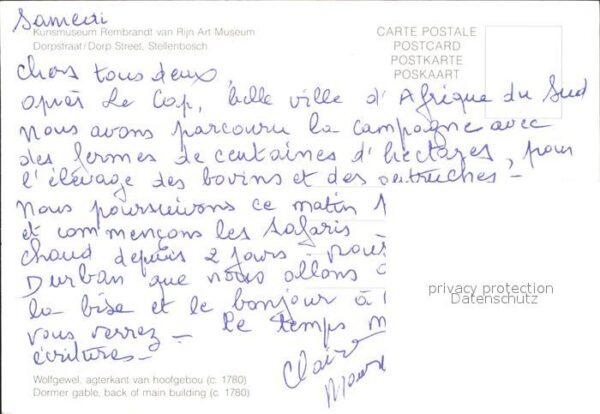 Samedi
Kunsmuseum Rembrandt van Rijn Art Museum
Dorpstraat/Dorp Street, Stellenbosch
CARTE POSTALE
POSTCARD
POSTKARTE
POSKAART
Chers tous deux,
après Le Cap, belle ville d'Afrique du Sud
nous avons parcouru la campagne avec
des fermes de centaines d'hectares, pour
l'élevage des bovins et des autruches -
Nous poursuivons ce matin
et commençons les safaris
chaud depuis 2 jours -
Durban que nous allons
la bise et le bonjour à
vous verrez - Le temps
écritures -
Claire
privacy protection
Datenschutz
Wolfgewel, agterkant van hoofgebou (c. 1780)
Dormer gable, back of main building (c. 1780)